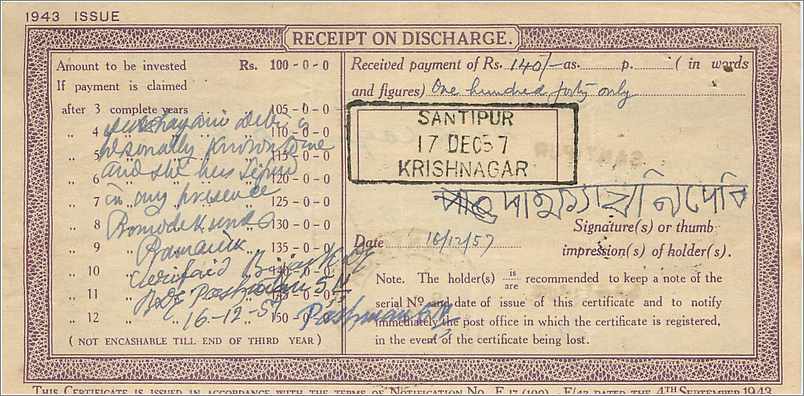 1943 ISSUE
RECEIPT ON DISCHARGE.
Amount to be invested Rs. 100-0-0
If payment is claimed
after 3 complete years 105-0-0
„ 4 „ „ 110-0-0
„ 5 „ „ 115-0-0
„ 6 „ „ 120-0-0
„ 7 „ „ 125-0-0
„ 8 „ „ 130-0-0
„ 9 „ „ 135-0-0
„ 10 „ „ -0-0
„ 11 „ „ -0-0
„ 12 „ „ 150-0-0
(NOT ENCASHABLE TILL END OF THIRD YEAR)
debi is
personally known to me
and she has signed
in my presence
16-12-57
Received payment of Rs. 140/- as. p. (in words
and figures) One hundred forty only
SANTIPUR
17 DEC 57
KRISHNAGAR
Signature(s) or thumb
Date 16/12/57 impression(s) of holder(s).
Note. The holder(s) is/are recommended to keep a note of the
serial No and date of issue of this certificate and to notify
immediately the post office in which the certificate is registered,
in the event of the certificate being lost.
Postman
THIS CERTIFICATE IS ISSUED IN ACCORDANCE WITH THE TERMS OF NOTIFICATION No. F.17 (100) - F/43 DATED THE 4TH SEPTEMBER 1943